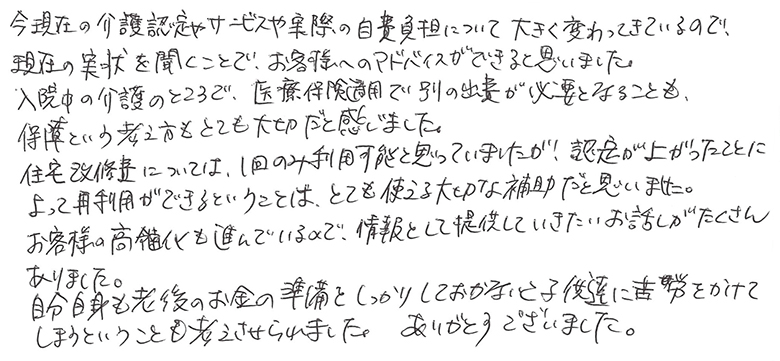 今現在の介護認定やサービスや実際の自費負担について大きく変わってきているので、
現在の実状を聞くことで、お客様へのアドバイスができると思いました。
入院中の介護のところで、医療保険適用で別の出費が必要となることも、
保障という考え方もとても大切だと感じました。
住宅改修費については、1回のみ利用可能と思っていましたが、認定が上がったことに
よって再利用ができるということは、とても使える大切な補助だと思いました。
お客様の高齢化も進んでいるので、情報として提供していきたいお話しがたくさん
ありました。
自分自身も老後のお金の準備をしっかりしておかないと子供達に苦労をかけて
しまうということも考えさせられました。 ありがとうございました。